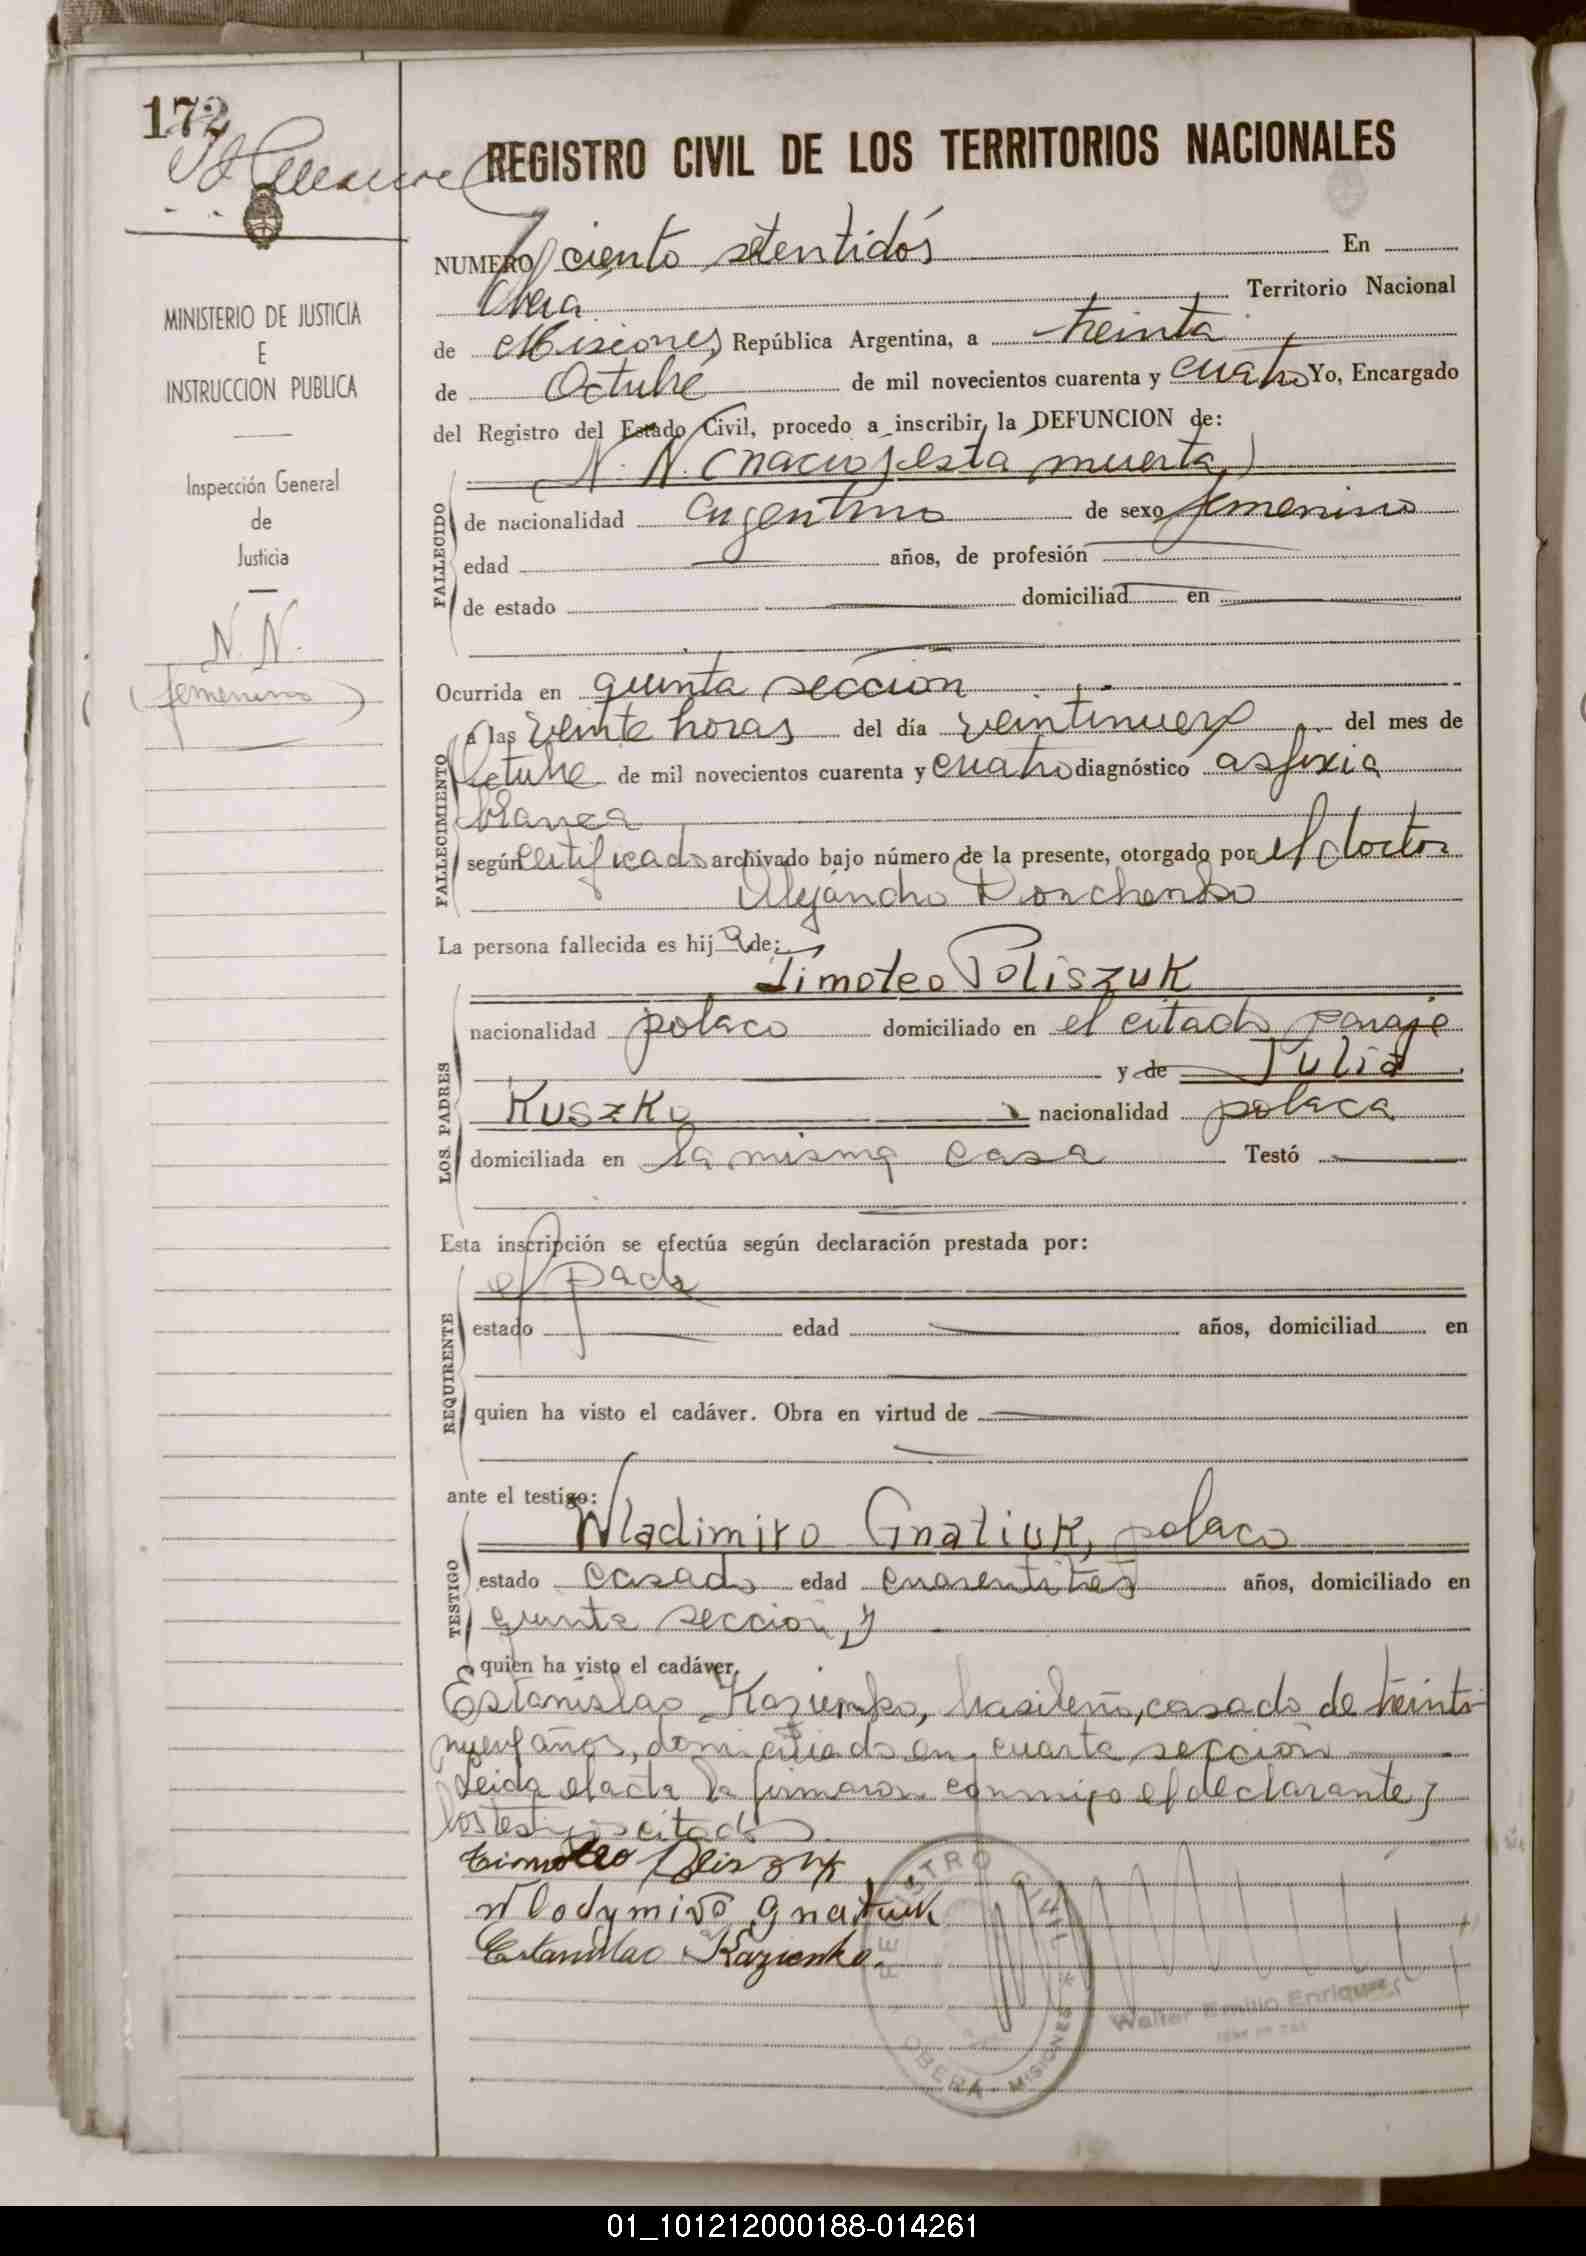 172
REGISTRO CIVIL DE LOS TERRITORIOS NACIONALES
MINISTERIO DE JUSTICIA
E
INSTRUCCION PUBLICA
Inspección General
de
Justicia
N. N.
(femenino)
NUMERO ciento setentidós En
Obera Territorio Nacional
de Misiones, República Argentina, a treinta
de Octubre de mil novecientos cuarenta y cuatro Yo, Encargado
del Registro del Estado Civil, procedo a inscribir la DEFUNCION de:
N. N. (nacio esta muerta)
FALLECIDO
de nacionalidad argentina de sexo femenino
edad años, de profesión
de estado domiciliad en
Ocurrida en quinta sección
FALLECIMIENTO
a las veinte horas del día veintinueve del mes de
Octubre de mil novecientos cuarenta y cuatro diagnóstico asfixia
blanca
según certificado archivado bajo número de la presente, otorgado por el doctor
Alejandro
La persona fallecida es hija de:
LOS PADRES
Timoteo Poliszuk
nacionalidad polaco domiciliado en el citado paraje
y de Julia
Kuszku nacionalidad polaca
domiciliada en la misma casa Testó
Esta inscripción se efectúa según declaración prestada por:
REQUIRENTE
el padre
estado edad años, domiciliad en
quien ha visto el cadáver. Obra en virtud de
ante el testigo:
TESTIGO
Wladimiro Gnatiuk, polaco
estado casado edad cuarentitres años, domiciliado en
quinta sección, y
quien ha visto el cadáver.
Estanislao Kazienko, brasileño, casado de treinti
nueve años, domiciliado en cuarta sección
Leida el acta la firmaron conmigo el declarante y
los testigos citados
Timoteo Poliszuk
Wlodymiro Gnatiuk
Estanislao Kazienko.
REGISTRO CIVIL
OBERA - MISIONES
Walter Emilio Enriquez
01_101212000188-014261